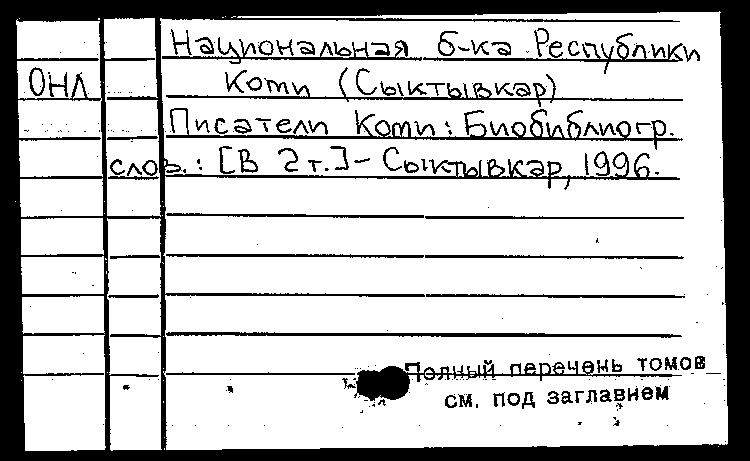 Национальная б-ка Республики
ОНЛ Коми (Сыктывкар)
Писатели Коми: Биобиблиогр.
слов.: [В 2 т.] - Сыктывкар, 1996.
Полный перечень томов
см. под заглавием